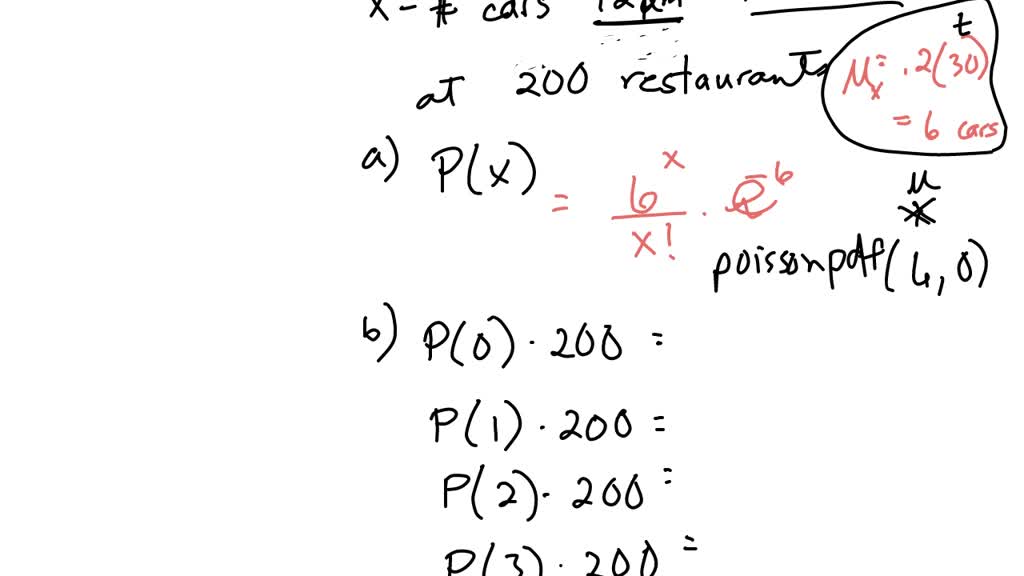 x - # cars
t
at 200 restaurants
μx = .2(30)
= 6 cars
a) P(x) = 6^x / x! · e^-6
μ
poissonpdf(6, 0)
b) P(0) · 200 =
P(1) · 200 =
P(2) · 200 =
P(3) · 200 =